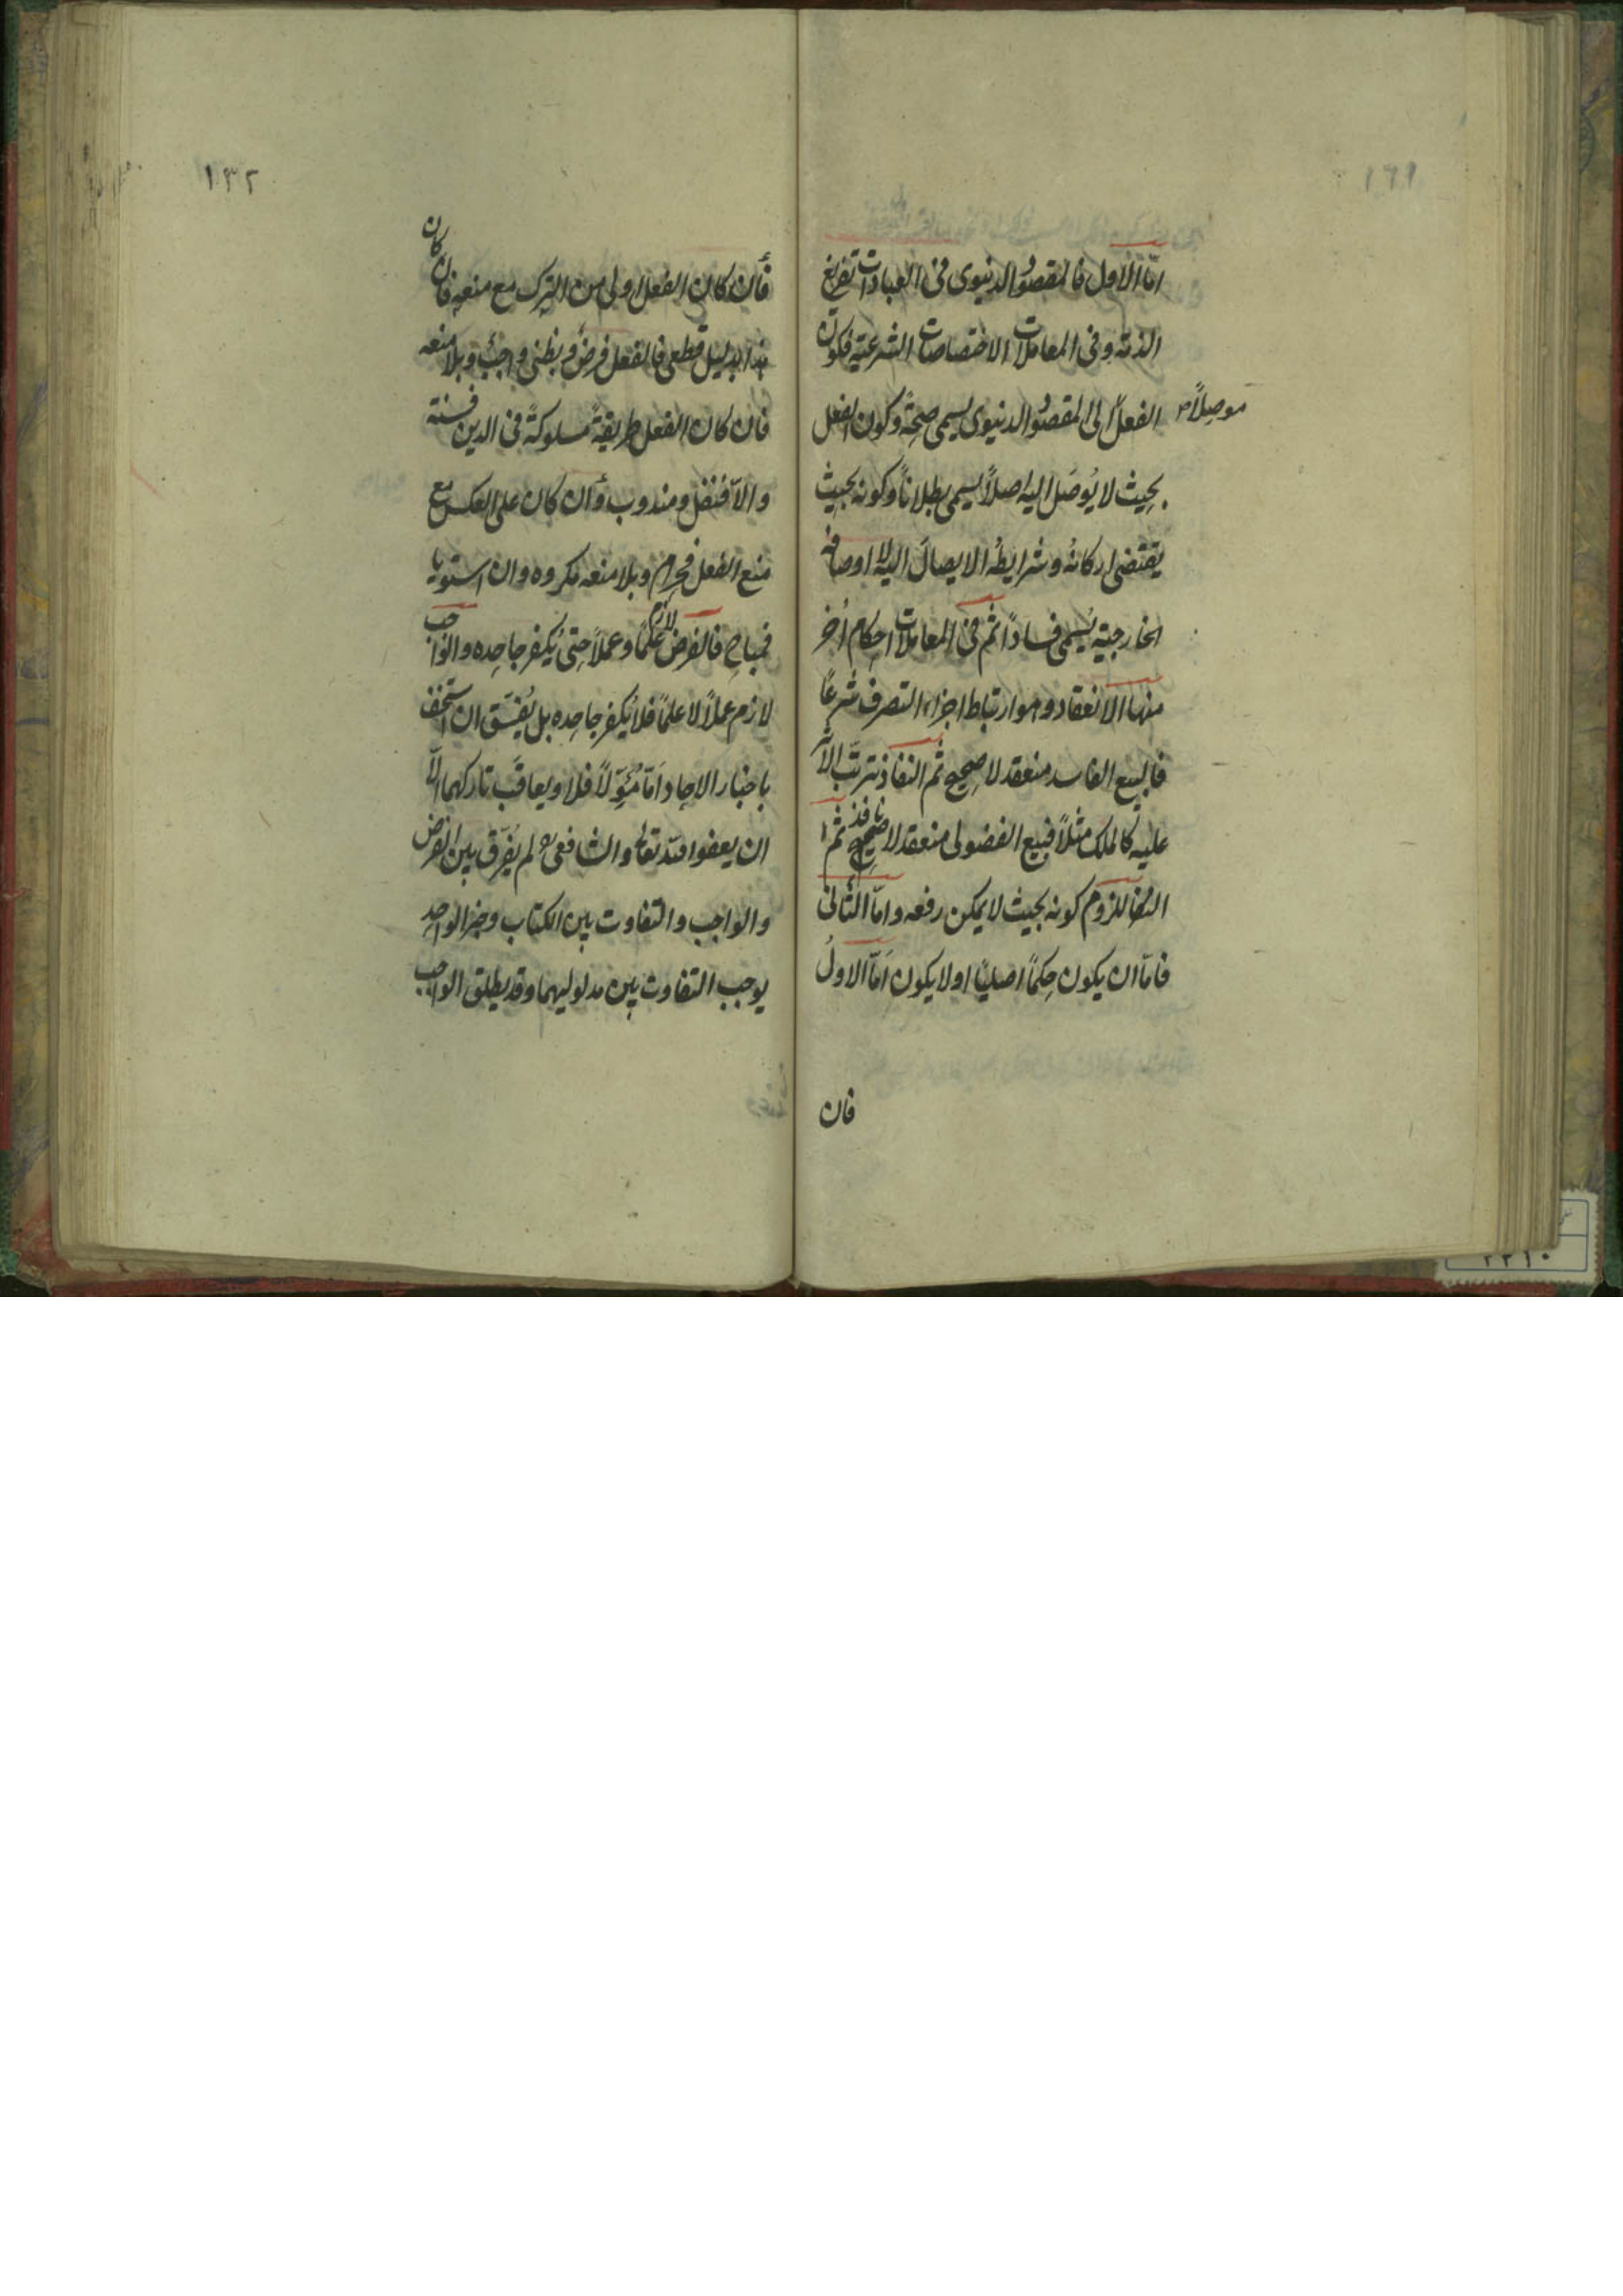 اما الاول فالمقصود الدنيوى فى العبادات تفريغ
الذمة وفى المعاملات الاختصاصات الشرعية فكون
الفعل الى المقصود الدنيوى يسمى صحةً وكون الفعل
موصلاً
بحيث لا يُوصَل اليه اصلاً يسمى بطلاناً وكونه بحيث
يقتضى اركانه وشرايطه الايصال اليه لا اوصافه
الخارجية يُسمى فساداً ثم فى المعاملات احكام اُخر
منها الانعقاد وهو ارتباط اجزاء التصرف شرعًا
فالبيع الفاسد منعقد لا صحيح ثم النفاذ ترتّب الاثر
عليه كالملك مثلاً فبيع الفضولى منعقد لا نافذ ثم
اللزوم كونه بحيث لا يمكن رفعه واما الثانى
فاما ان يكون حكماً اصلياً اولا يكون اَمّا الاولُ
فان
١٣٢
فأن كان الفعل اولى من الترك مع منعه فان كان
هذا بدليل قطعى فالفعل فرض وبظنى واجب وبلا منعه
فان كان الفعل طريقةً مسلوكةً فى الدين فسنة
والاّ فنفل ومندوب وأن كان على العكس مع
منع الفعل فحرام وبلا منعه مكروه وان استويا
فمباح فالفرض لازم علمًا وعملاً حتى يُكفر جاحده والواجب
لازم عملاً لا علماً فلا يُكفر جاحده بل يُفسّق ان استخف
باخبار الاحاد اَمّا مُؤوّلاً فلا ويعاقَب تاركهما الاّ
ان يعفو الله تعالى والشافعى لم يُفرّق بين الفرض
والواجب والتفاوت بين الكتاب وخبر الواحد
يوجب التفاوت بين مدلوليهما وقد يطلق الواجب